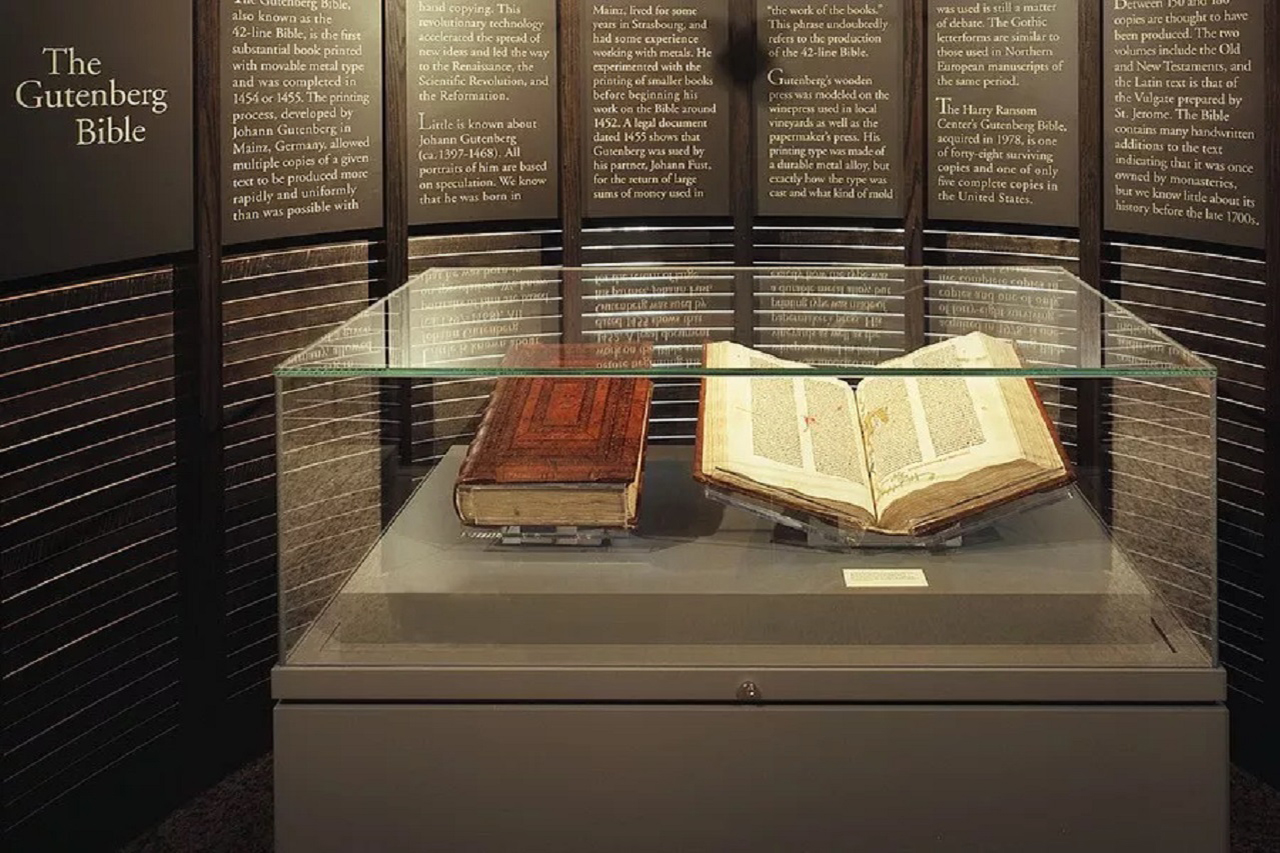 The
Gutenberg
Bible
The Gutenberg Bible,
also known as the
42-line Bible, is the first
substantial book printed
with movable metal type
and was completed in
1454 or 1455. The printing
process, developed by
Johann Gutenberg in
Mainz, Germany, allowed
multiple copies of a given
text to be produced more
rapidly and uniformly
than was possible with
hand copying. This
revolutionary technology
accelerated the spread of
new ideas and led the way
to the Renaissance, the
Scientific Revolution, and
the Reformation.
Little is known about
Johann Gutenberg
(ca. 1397-1468). All
portraits of him are based
on speculation. We know
that he was born in
Mainz, lived for some
years in Strasbourg, and
had some experience
working with metals. He
experimented with the
printing of smaller books
before beginning his
work on the Bible around
1452. A legal document
dated 1455 shows that
Gutenberg was sued by
his partner, Johann Fust,
for the return of large
sums of money used in
"the work of the books."
This phrase undoubtedly
refers to the production
of the 42-line Bible.
Gutenberg's wooden
press was modeled on the
winepress used in local
vineyards as well as the
papermaker's press. His
printing type was made of
a durable metal alloy, but
exactly how the type was
cast and what kind of mold
was used is still a matter
of debate. The Gothic
letterforms are similar to
those used in Northern
European manuscripts of
the same period.
The Harry Ransom
Center's Gutenberg Bible,
acquired in 1978, is one
of forty-eight surviving
copies and one of only
five complete copies in
the United States.
Between 150 and 180
copies are thought to have
been produced. The two
volumes include the Old
and New Testaments, and
the Latin text is that of
the Vulgate prepared by
St. Jerome. The Bible
contains many handwritten
additions to the text
indicating that it was once
owned by monasteries,
but we know little about its
history before the late 1700s.